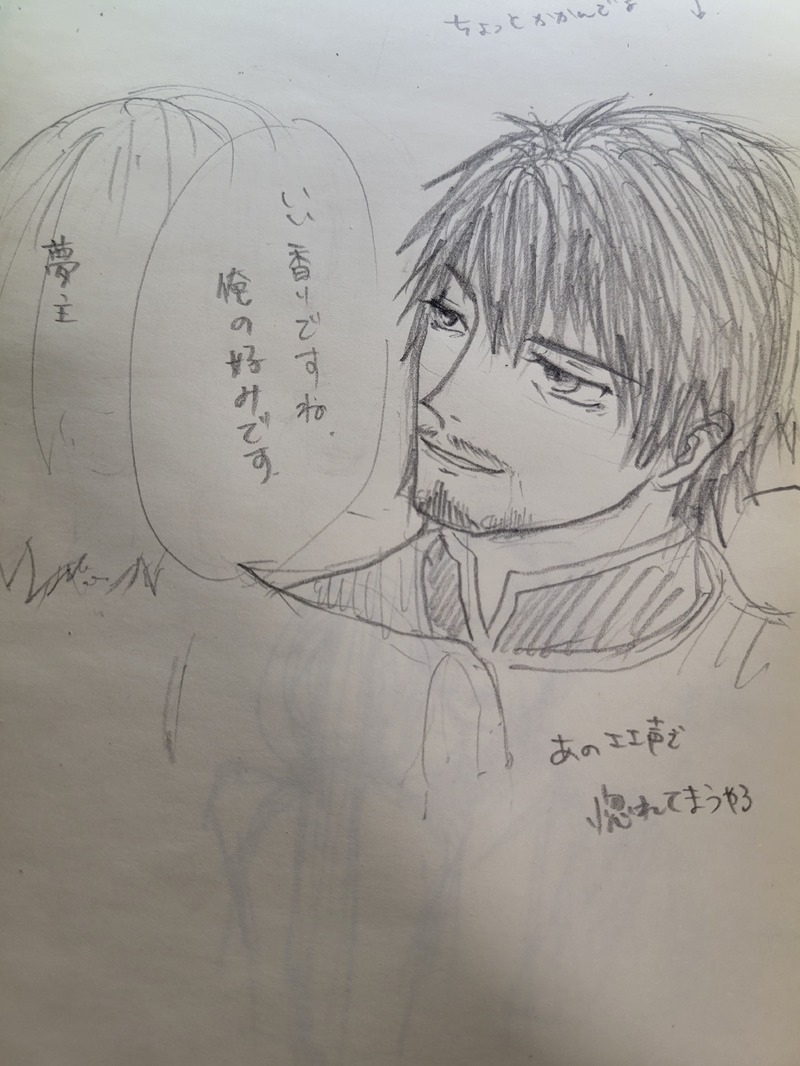 ちょっとかがんでる
いい香りですね。
俺の好みです。
夢主
あのエエ声で
惚れてまうやろ